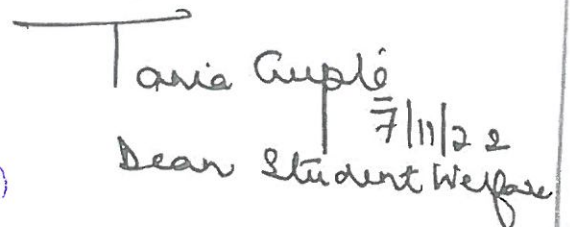 Tania Gupta
7/11/22
Dean Student Welfare